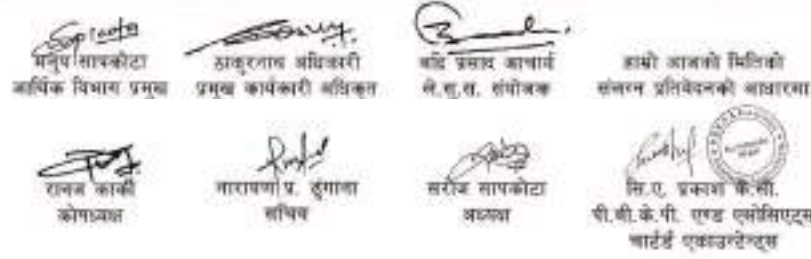 मनुप सापकोटा
आर्थिक विभाग प्रमुख
ठाकुरनाथ अधिकारी
प्रमुख कार्यकारी अधिकृत
बद्रि प्रसाद आचार्य
ले.सु.स. संयोजक
हाम्रो आजको मितिको
संलग्न प्रतिवेदनको आधारमा
कार्की
कोषाध्यक्ष
नारायण प्र. ढुंगाना
सचिव
सरोज सापकोटा
अध्यक्ष
सि.ए. प्रकाश के.सी.
पी.बी.के.पी. एण्ड एसोसिएट्स
चार्टर्ड एकाउन्टेन्ट्स